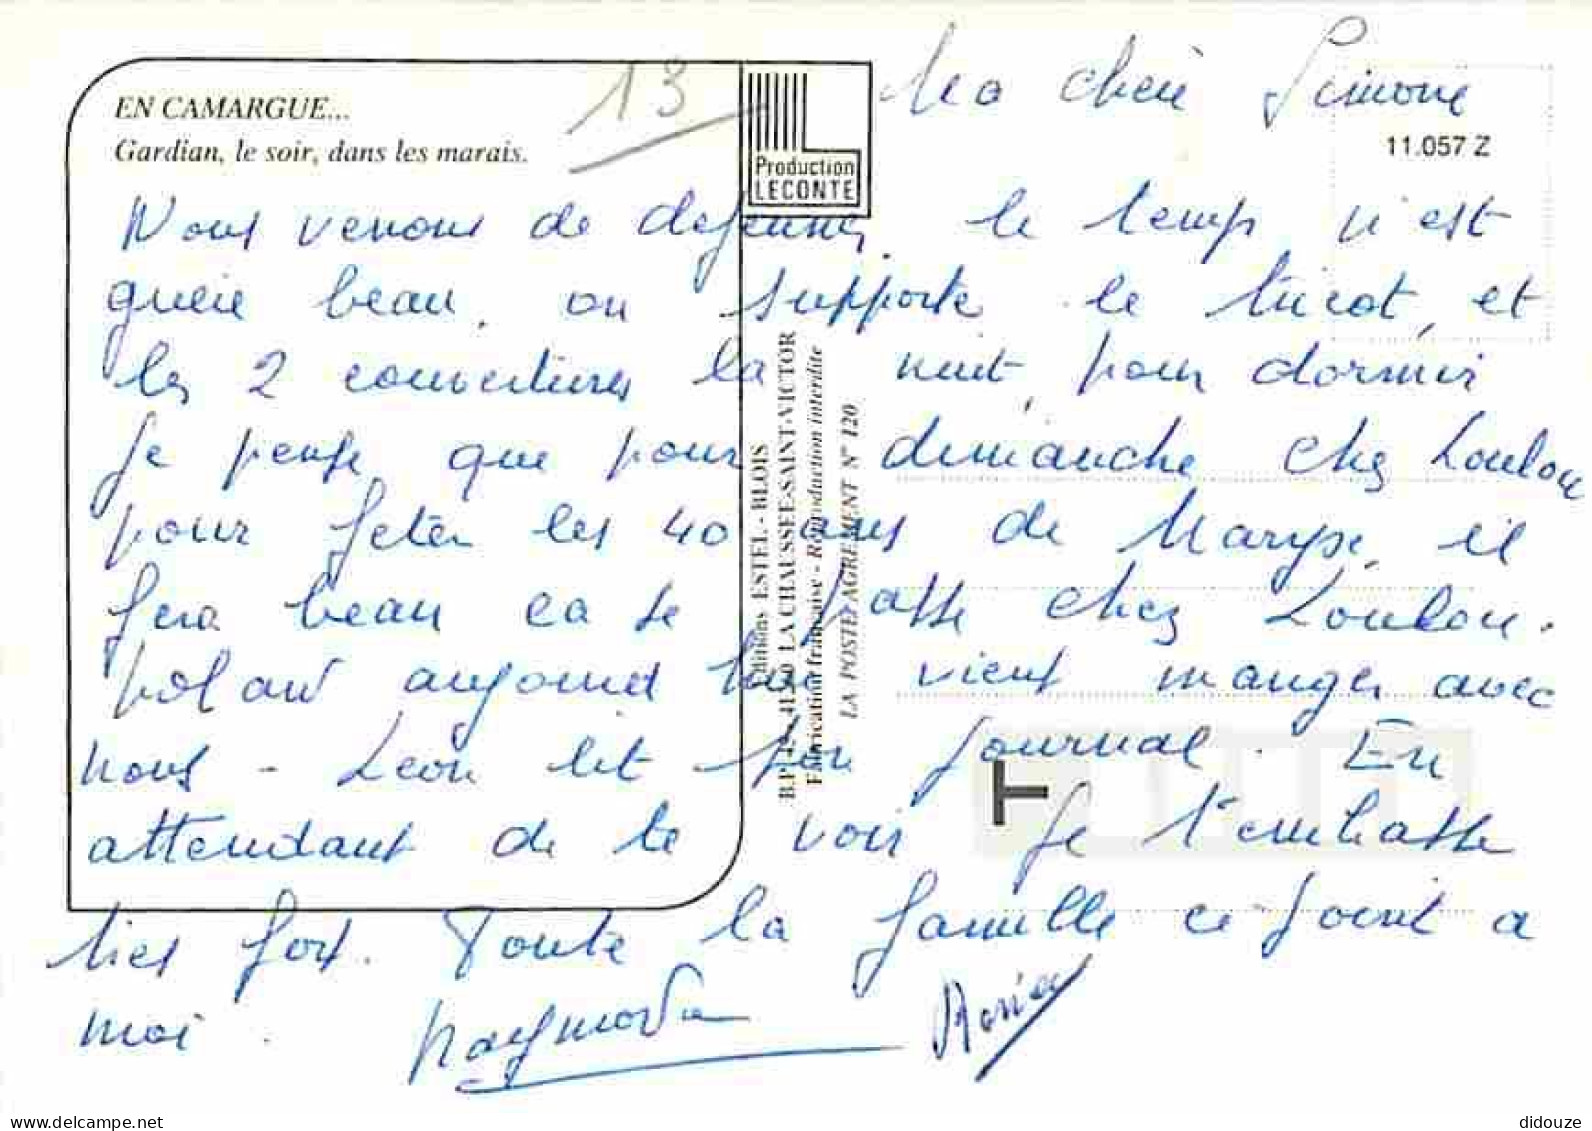 EN CAMARGUE...
Gardian, le soir, dans les marais.
13
Production
LECONTE
11.057 Z
Ma cher Simone
Nous venons de dejeuner, le temp n'est
guere beau, on supporte le tricot, et
les 2 couvertures la nuit, pour dormir
Je pense que pour dimanche chez Loulou
pour feter les 40 ans de Maryse, il
fera beau ca se passe chez Loulou.
aujourd hui vient manger avec
nous - Leon lit son journal. En
attendant de te voir Je t'embrasse
tres fort. Toute la famille ce joint a
moi.
Raymonde
Editions ESTEL - BLOIS
B.P. 41260 LA CHAUSSEE-SAINT-VICTOR
Fabrication française - Reproduction interdite
LA POSTE AGREMENT N° 120
delcampe.net
didouze